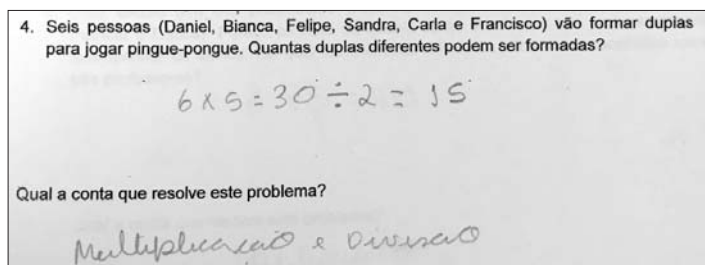 4. Seis pessoas (Daniel, Bianca, Felipe, Sandra, Carla e Francisco) vão formar duplas
para jogar pingue-pongue. Quantas duplas diferentes podem ser formadas?
6 x 5 = 30 ÷ 2 = 15
Qual a conta que resolve este problema?
Multiplicação e Divisão